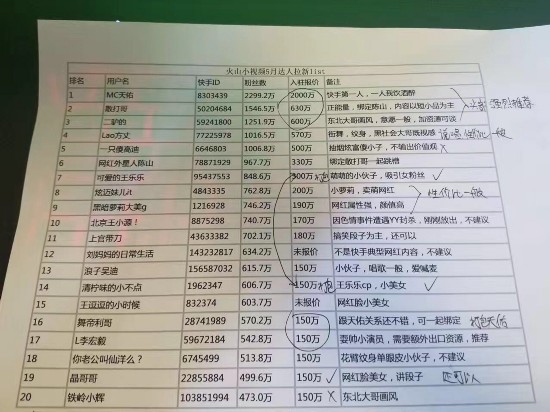 火山小视频5月达人拉新list
排名 用户名 快手ID 粉丝数 入驻报价 备注
1 MC天佑 8303439 2299.2万 2000万 快手第一人，一人我饮酒醉
2 散打哥 50204684 1546.5万 630万 正能量，绑定陈山，内容以短小品为主 强烈推荐
3 二驴的 59241800 1251.9万 600万 东北大哥画风，意愿一般，加资源可谈
4 Lao方丈 77225978 1016.5万 570万 街舞，纹身，黑社会大哥既视感 一般
5 一只傻高迪 6646803 1006.8万 500万 抽烟炫富傻小子，不输出价值观 ×
6 网红外星人陈山 78871929 967.7万 330万 绑定散打哥一起跳槽
7 可爱的王乐乐 95457355 787.5万 300万 萌萌的小伙子，吸引女粉丝 ✓
8 炫迈妹儿t 48433835 762.8万 200万 小萝莉，卖萌网红 性价比一般
9 黑暗萝莉大美g 1216928 746.2万 190万 网红属性强，颜值高
10 北京王小源！ 88875298 740.7万 170万 因色情事件遭遇YY封杀，刚刚放出，不建议
11 上官带刀 43633382 702.1万 180万 搞笑段子为主，还可以
12 刘妈妈的日常生活 143232817 634.2万 未报价 不是快手典型网红内容，不建议
13 浪子吴迪 156587032 615.7万 150万 小伙子，唱歌一般，爱喊麦
14 清柠味的小不点 1962347 606.7万 150万 王乐乐cp，小美女 ✓
15 王逗逗的小时候 832374 603.7万 未报价 网红脸小美女
16 舞帝利哥 28741989 570.2万 150万 跟天佑关系还不错，可一起绑定 天佑
17 L李宏毅 59672184 542.8万 150万 耍帅小演员，需要额外出口资源，推荐
18 你老公叫仙洋么？ 6745499 513.8万 150万 花臂纹身单眼皮小伙子，不建议
19 晶哥哥 22855884 499.6万 150万 ✓ 网红脸美女，讲段子 还可以
20 铁岭小辉 103851994 473.0万 150万 × 东北大哥画风